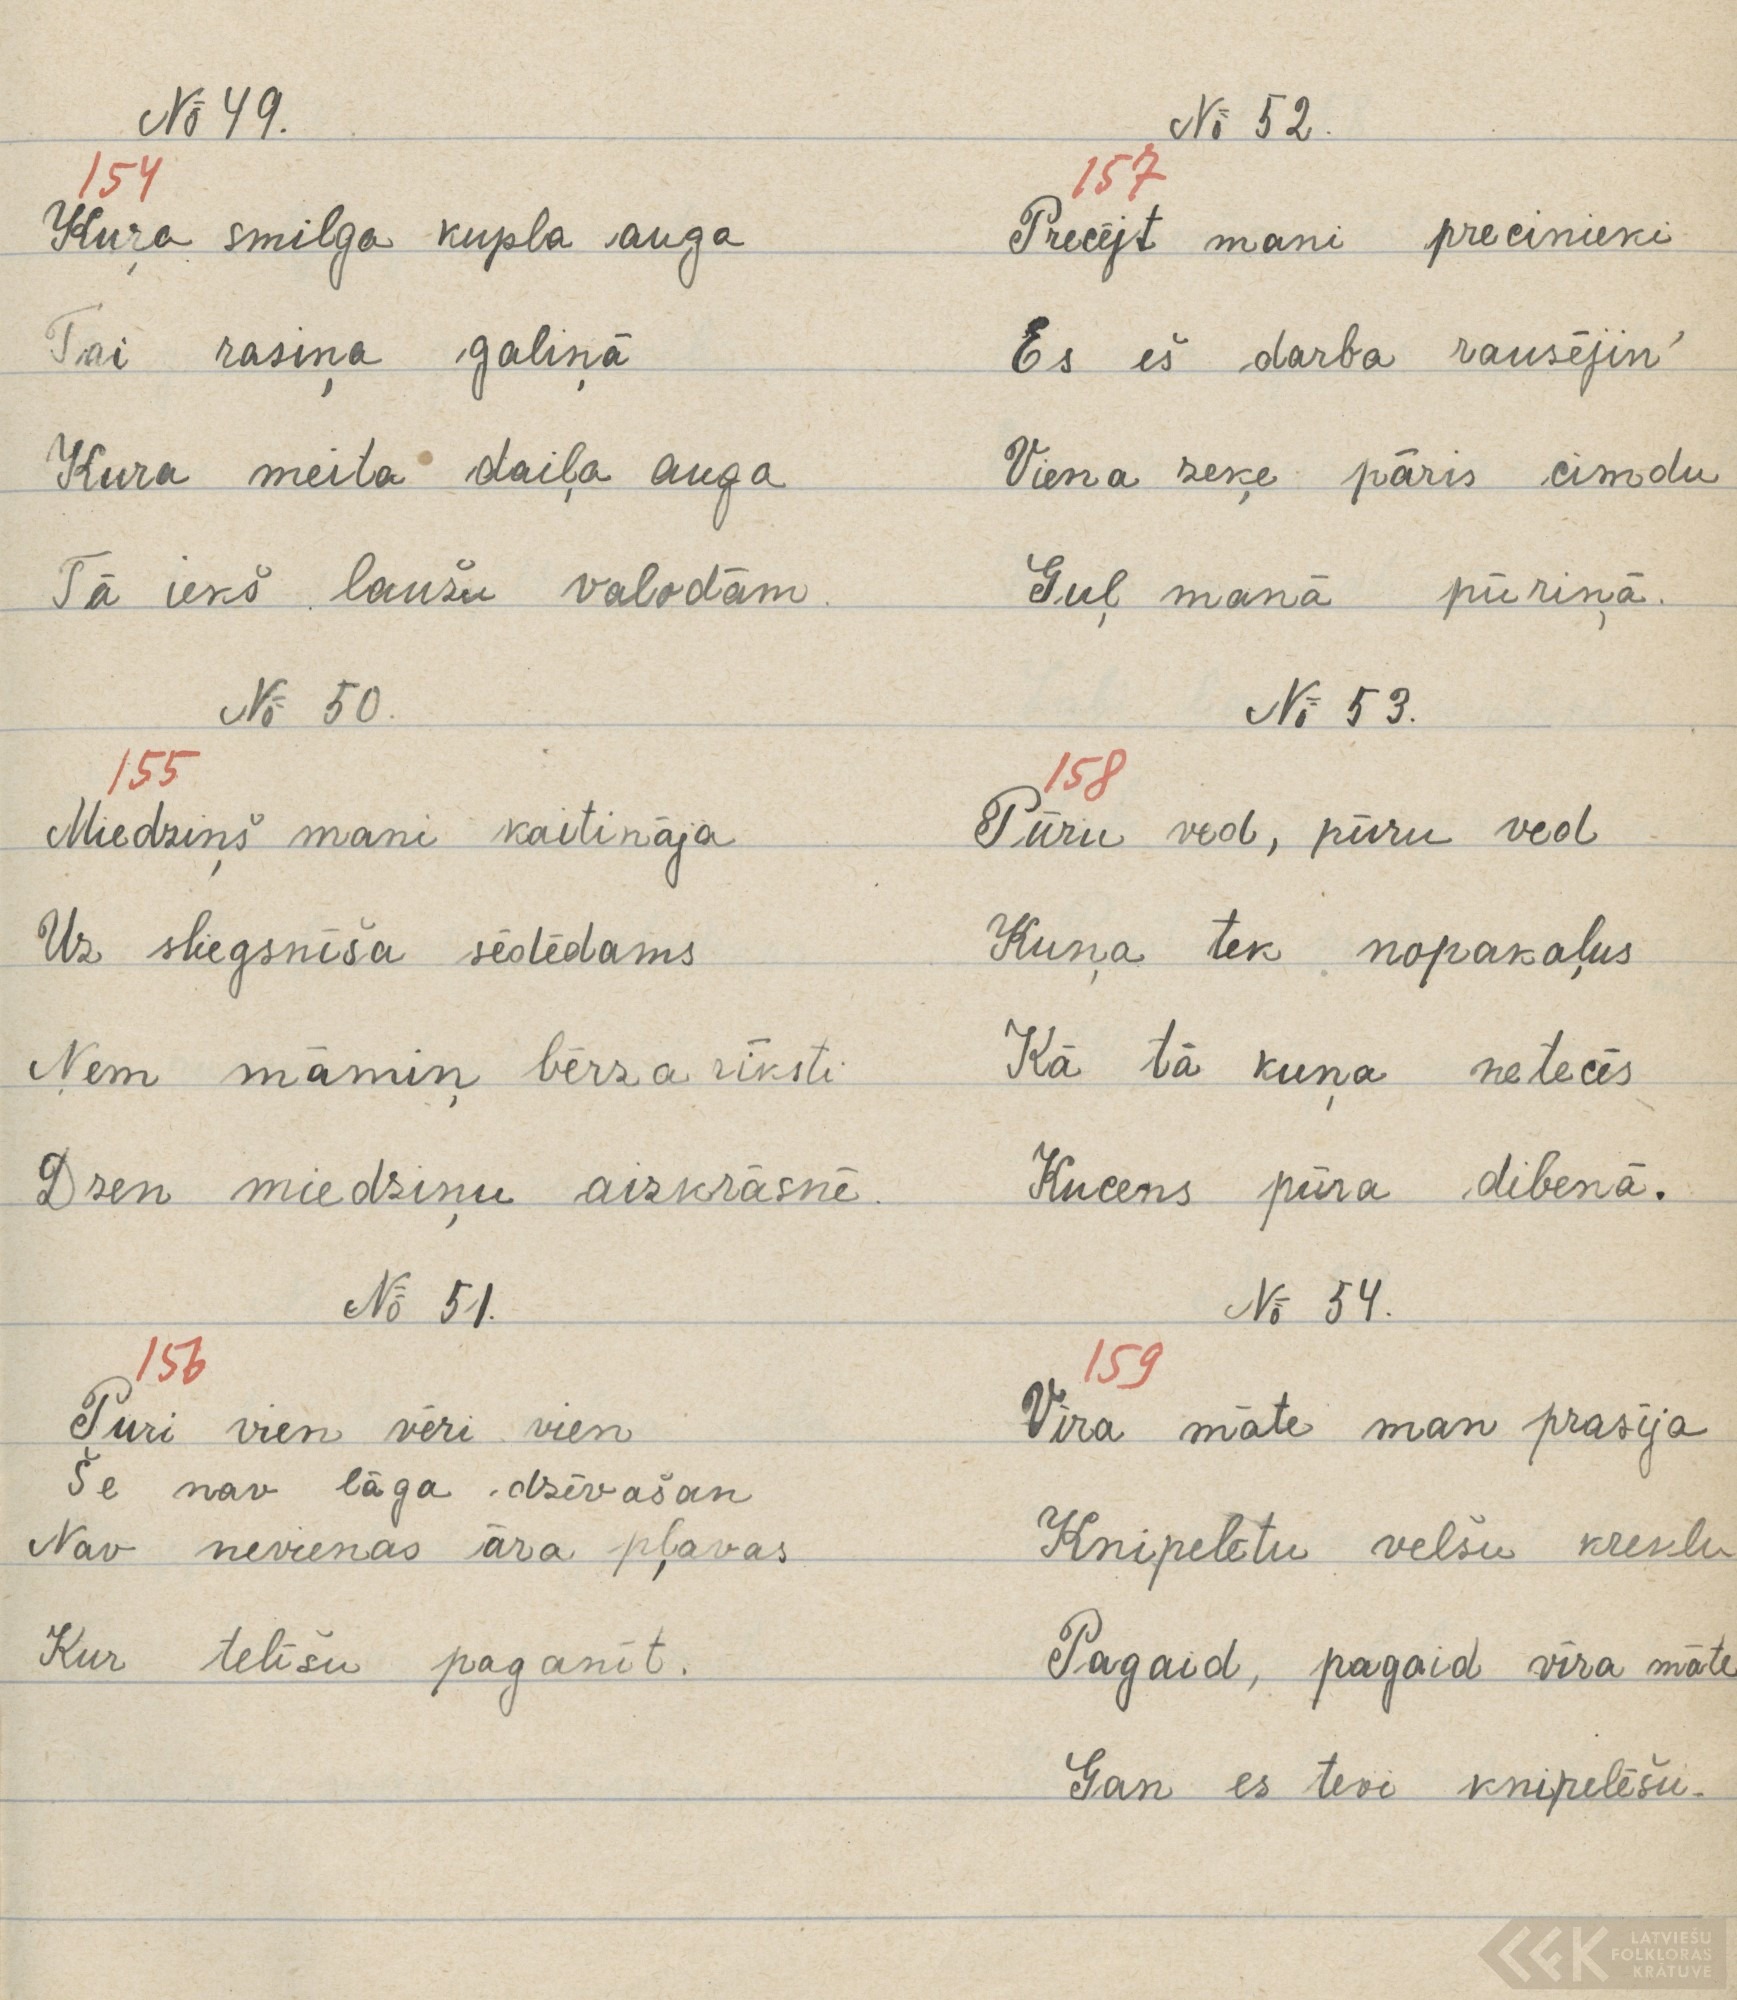 No 49.
154
Kuŗa smilga kupla auga
Tai rasiņa galiņā
Kura meita daiļa auga
Tā iekš laužu valodām.
No 50.
155
Miedziņš mani kaitināja
Uz sliegsnīša sēdēdams
Ņem māmiņ bērza rīksti
Dzen miedziņu aizkrāsnē.
No 51.
156
Puri vien vēri vien
Še nav lāga dzīvašan
Nav nevienas āra pļavas
Kur telīšu paganīt.
No 52.
157
Precējt mani precinieki
Es eš darba rausējin'
Viena zeķe pāris cimdu
Guļ manā pūriņā.
No 53.
158
Pūru ved, pūru ved
Kuņa tek nopakaļus
Kā tā kuņa netecēs
Kucens pūra dibenā.
No 54.
159
Vīra māte man prasīja
Knipelētu velšu kreklu
Pagaid, pagaid vīra māte
Gan es tevi knipelēšu.
LATVIEŠU
FOLKLORAS
KRĀTUVE